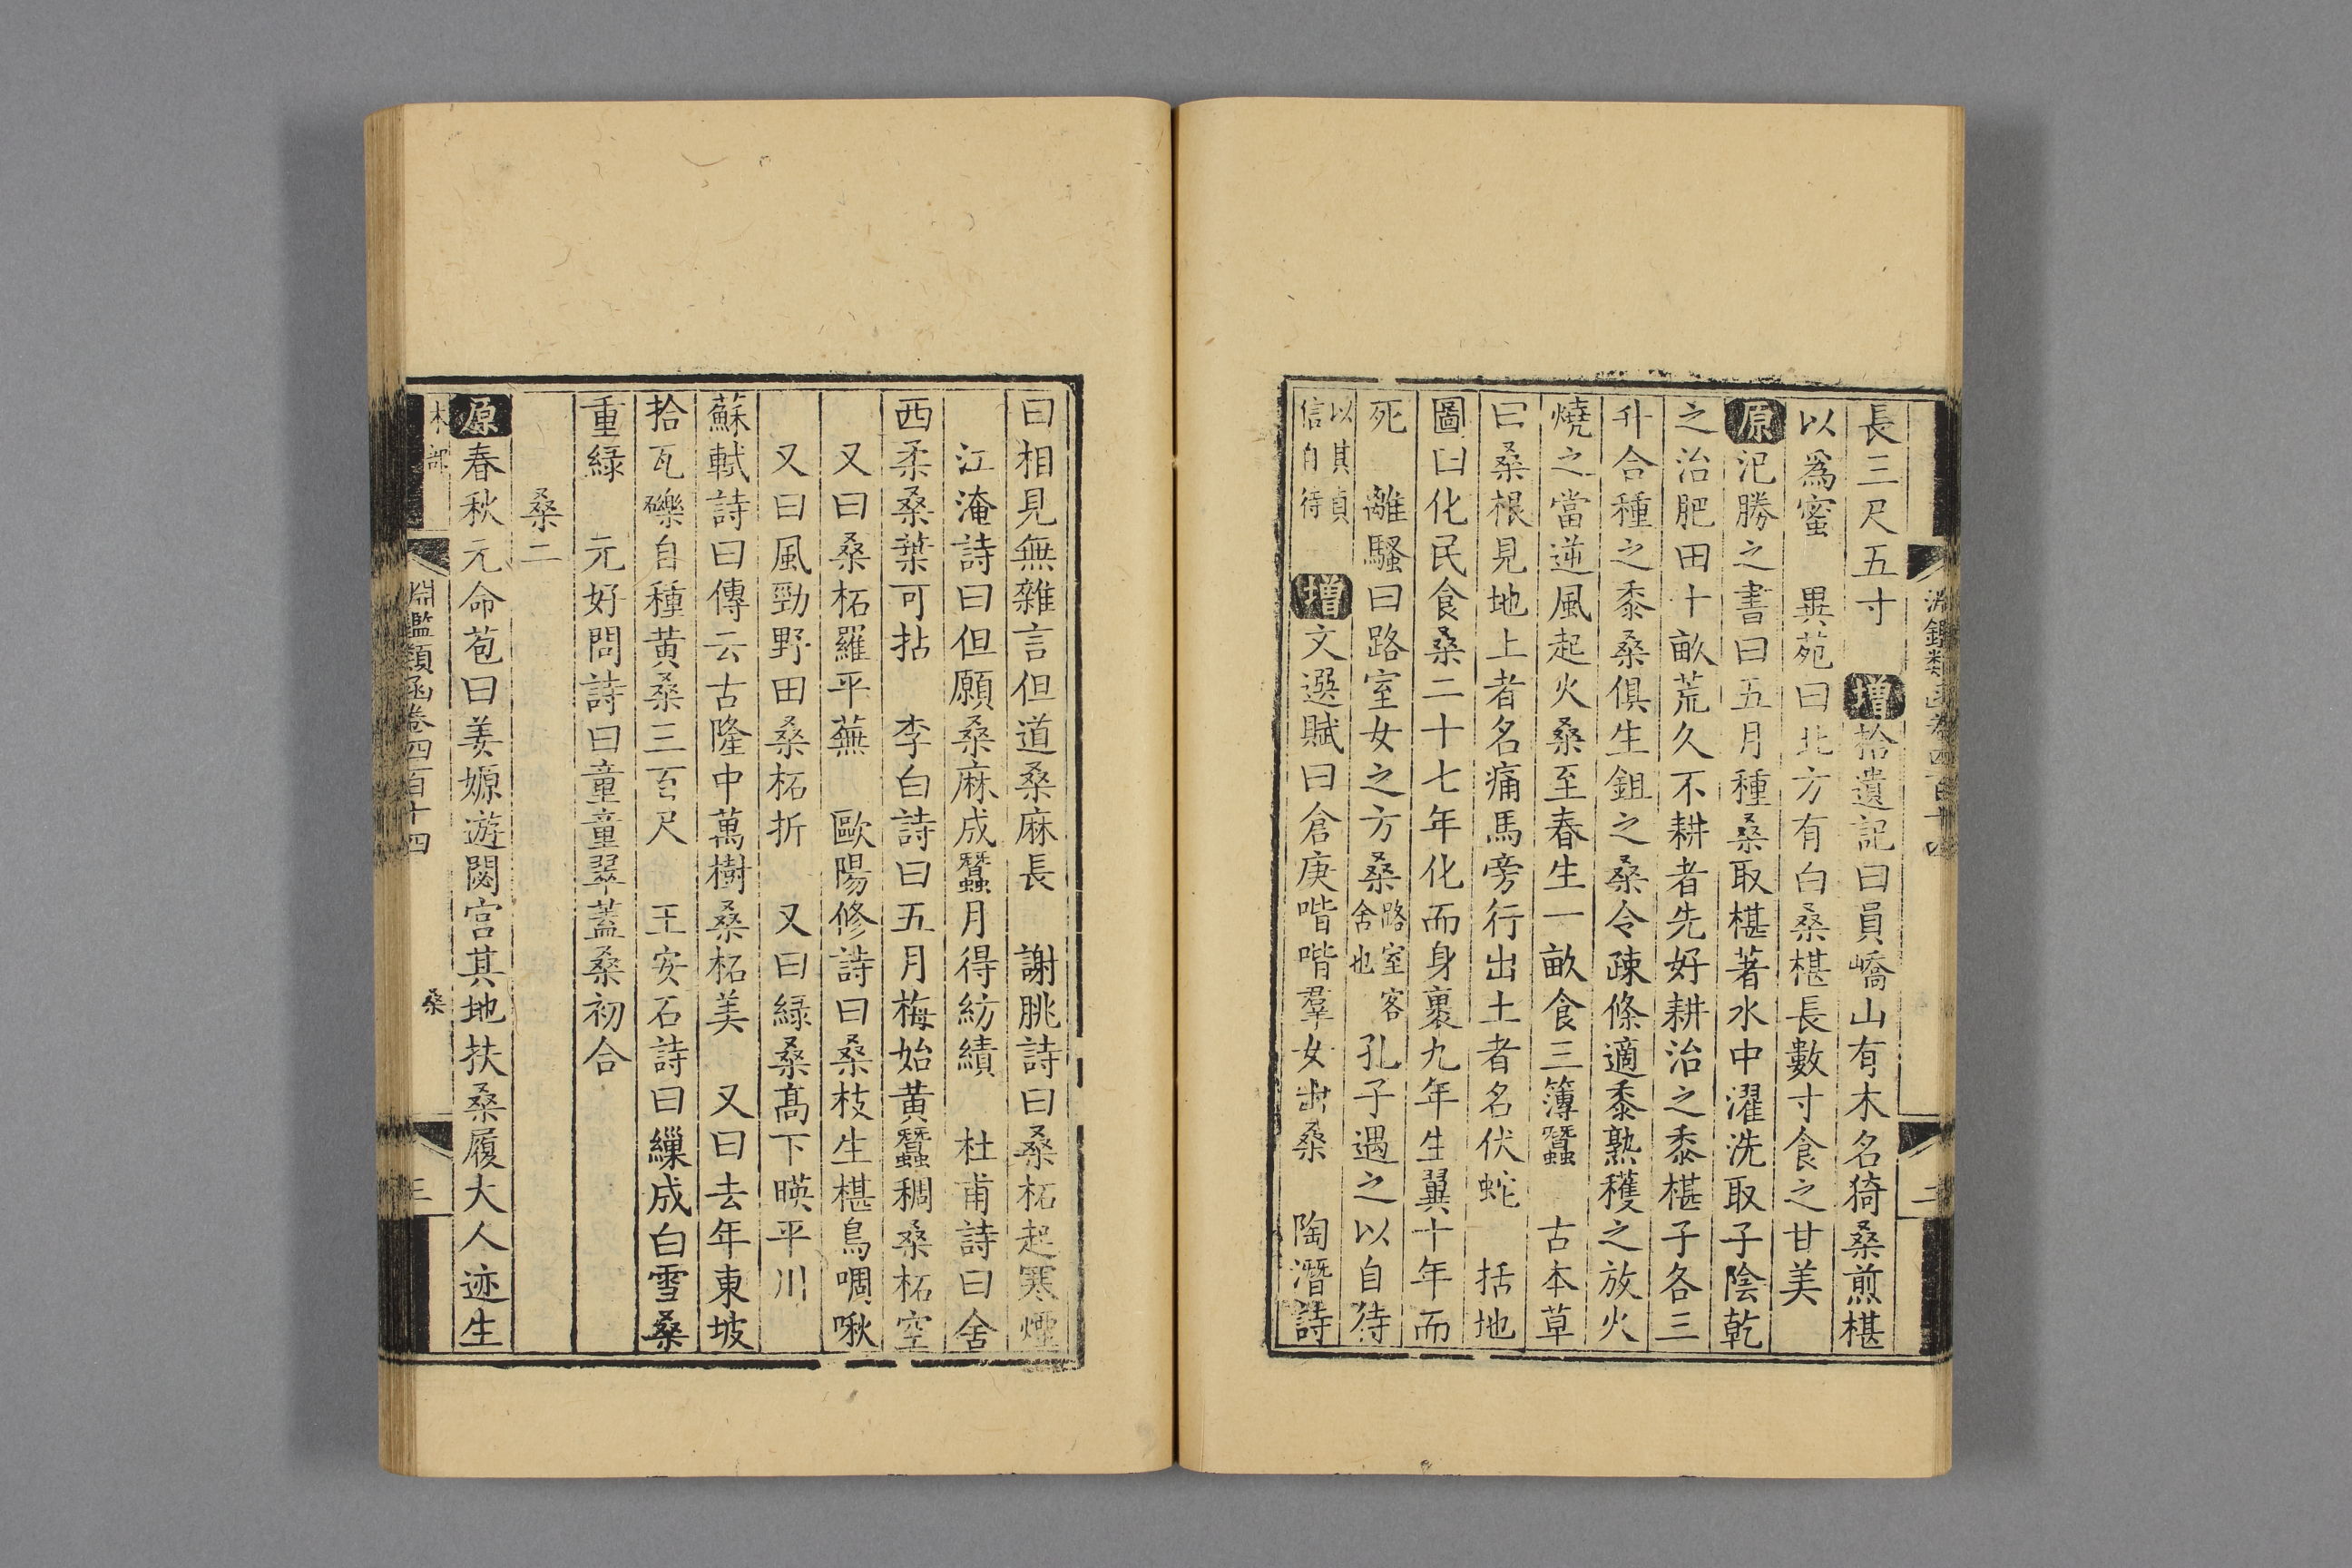 淵鑑類函卷四百十四
二
長三尺五寸 增拾遺記曰員嶠山有木名猗桑煎椹
以爲蜜 異苑曰北方有白桑椹長數寸食之甘美
原氾勝之書曰五月種桑取椹著水中濯洗取子陰乾
之治肥田十畝荒久不耕者先好耕治之黍椹子各三
升合種之黍桑俱生鉏之桑令疎條適黍熟穫之放火
燒之當逆風起火桑至春生一畝食三簿蠶 古本草
曰桑根見地上者名痛馬旁行出土者名伏蛇 括地
圖曰化民食桑二十七年化而身裹九年生翼十年而
死 離騷曰路室女之方桑路室客舍也 孔子遇之以自待
以其貞信自待 增文選賦曰倉庚喈喈羣女出桑 陶潛詩
曰相見無雜言但道桑麻長 謝朓詩曰桑柘起寒煙
江淹詩曰但願桑麻成蠶月得紡績 杜甫詩曰舍
西柔桑葉可拈 李白詩曰五月梅始黄蠶稠桑柘空
又曰桑柘羅平蕪 歐陽修詩曰桑枝生椹鳥啁啾
又曰風勁野田桑柘折 又曰緑桑髙下暎平川
蘇軾詩曰傳云古隆中萬樹桑柘美 又曰去年東坡
拾瓦礫自種黄桑三百尺 王安石詩曰繅成白雪桑
重緑 元好問詩曰童童翠蓋桑初合
桑二
原春秋元命苞曰姜嫄遊閟宫其地扶桑履大人迹生
木部
淵鑑類函卷四百十四
桑
三